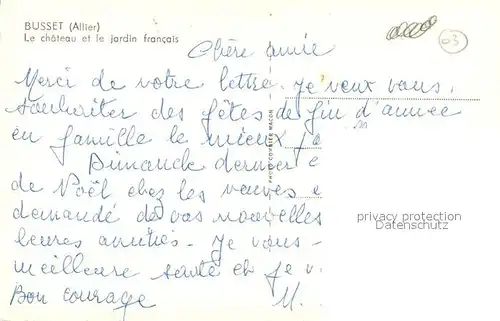 BUSSET (Allier)
Le château et le jardin français
03
Chère amie
Merci de votre lettre. Je veux vous
souhaiter des fêtes de fin d'année
en famille le mieux
Dimanche dernier
de Noël chez les veuves
demandé de vos nouvelles
leures amitiés - Je vous
meilleure santé et je v
Bon courage M.
PHOTO COMBIER MACON
privacy protection
Datenschutz